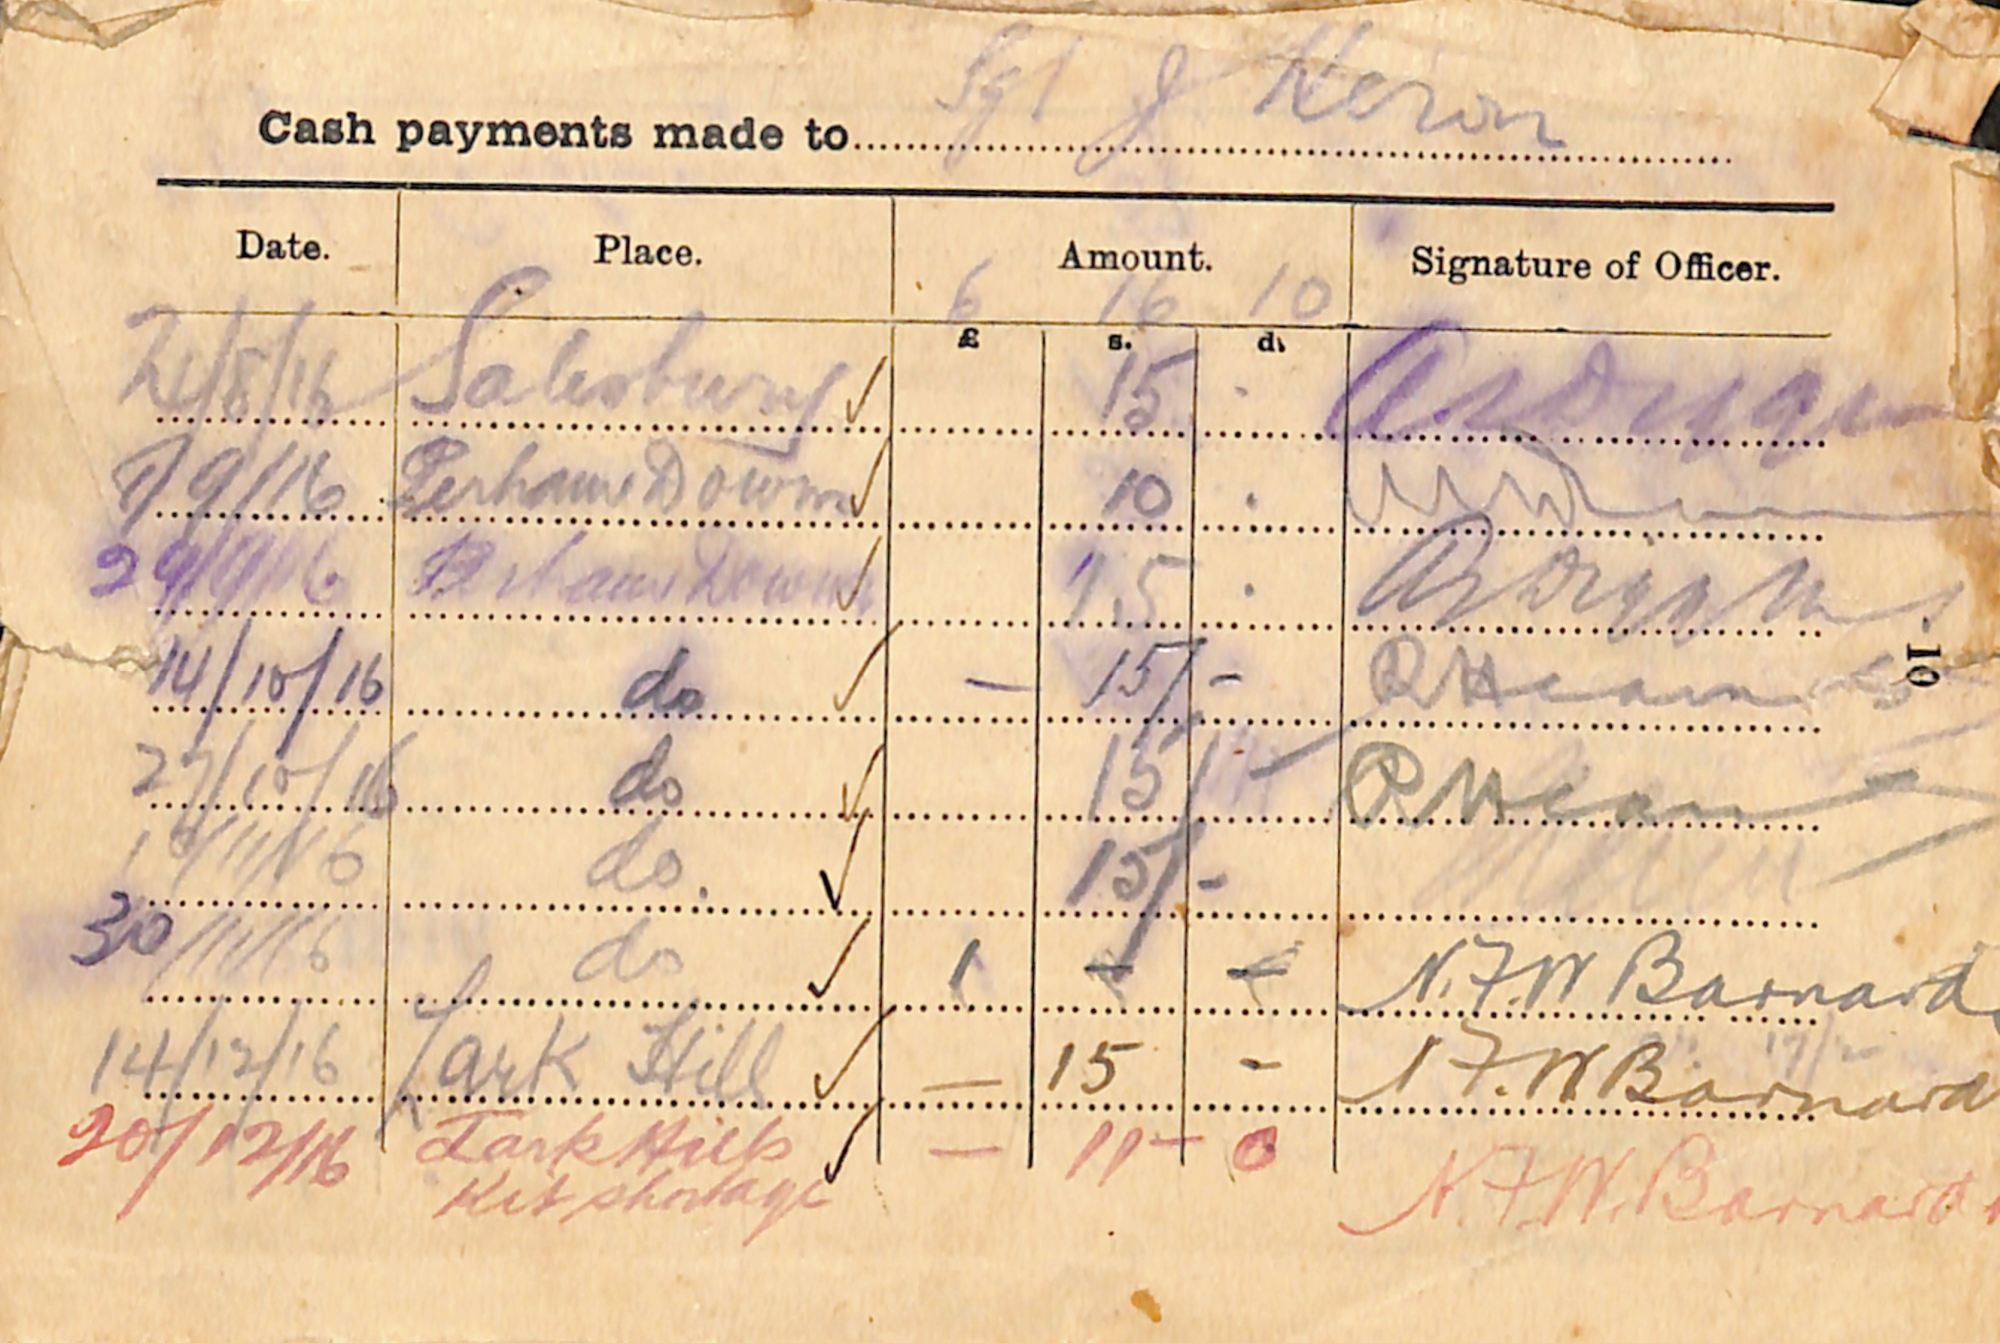 Sgt J Heron
Cash payments made to
Date. Place. Amount. Signature of Officer.
6 16 10
£ s. d.
21/8/16 Salesbury ✓ 15 .
7/9/16 Perham Downs ✓ 10 .
29/9/16 Perham Downs ✓ 15 .
14/10/16 do ✓ — 15/-
27/10/16 do ✓ 15/-
/11/16 do. ✓ 15/-
30/11/16 do ✓ 1 — — N.F.W Barnard
14/12/16 Lark Hill ✓ — 15 - N.F.W Barnard
20/12/16 Lark Hill ✓ — 11 - 0 N.F.W. Barnard
Kit shortage
10